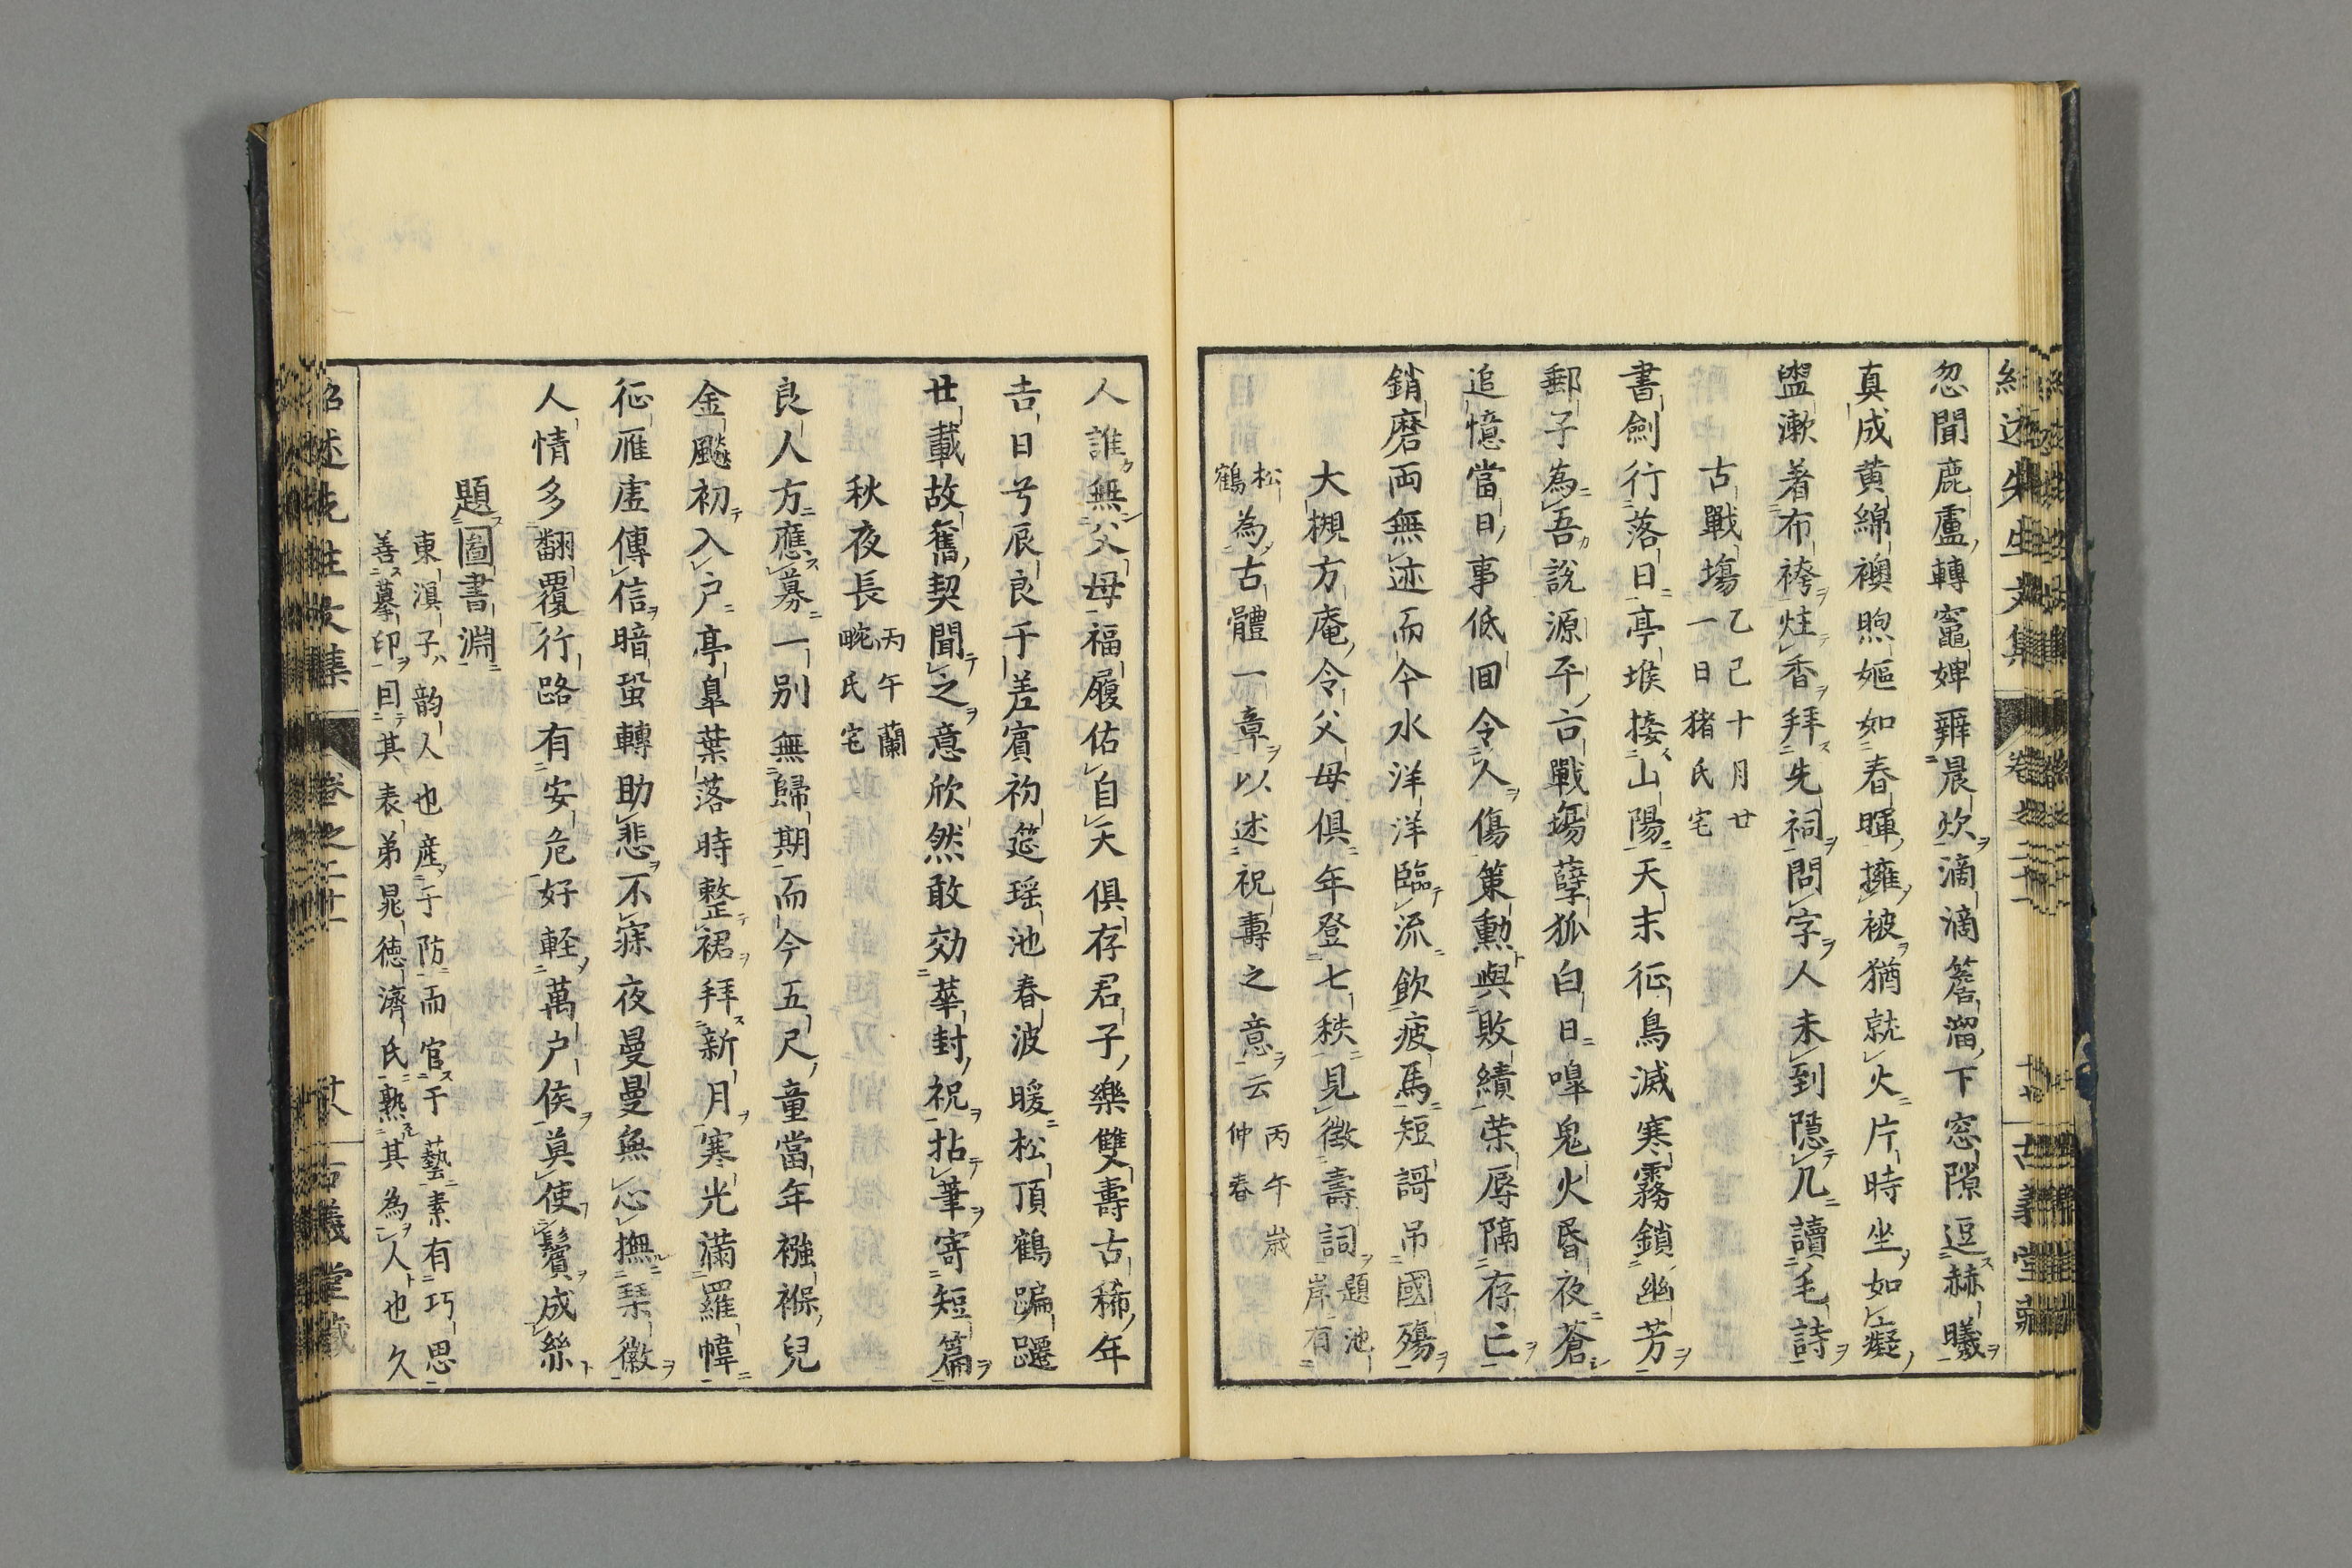 忽聞鹿盧轉竃婢辨晨炊滴滴簷溜下窓隙逗赫曦
真成黄綿襖煦嫗如春暉擁被猶就火片時坐如癡
盥漱着布袴炷香拜先祠問字人未到隱几讀毛詩
古戰塲乙巳十月廿一日猪氏宅
書劍行落日亭堠接山陽天末征鳥滅寒霧鎖幽芳
郵子為吾說源平古戰塲孽狐白日嘷鬼火昏夜蒼
追憶當日事低回令人傷策勳與敗績荣辱隔存亡
銷磨両無迹而今水洋洋臨流飲疲馬短謌吊國殤
大槻方庵令父母俱年登七秩見徵壽詞題池岸有
松鶴為古體一章以述祝壽之意云丙午歲仲春
人誰無父母福履佑自天俱存君子樂雙壽古稀年
吉日兮辰良千差賓初筵瑶池春波暖松頂鶴蹁躚
廿載故舊契聞之意欣然敢効華封祝拈筆寄短篇
秋夜長丙午蘭畹氏宅
良人方應募一别無歸期而今五尺童當年襁褓兒
金飈初入户亭臯葉落時整裙拜新月寒光滿羅幃
征雁虚傳信暗蛩轉助悲不寐夜曼曼無心撫琴徽
人情多翻覆行路有安危好輕萬户侯莫使鬢成絲
題圖書淵
東溟子韵人也産于防而官于藝素有巧思
善摹印因其表弟晁德濟氏熟其為人也久
紹述先生文集
卷之二十一
十八
古義堂藏